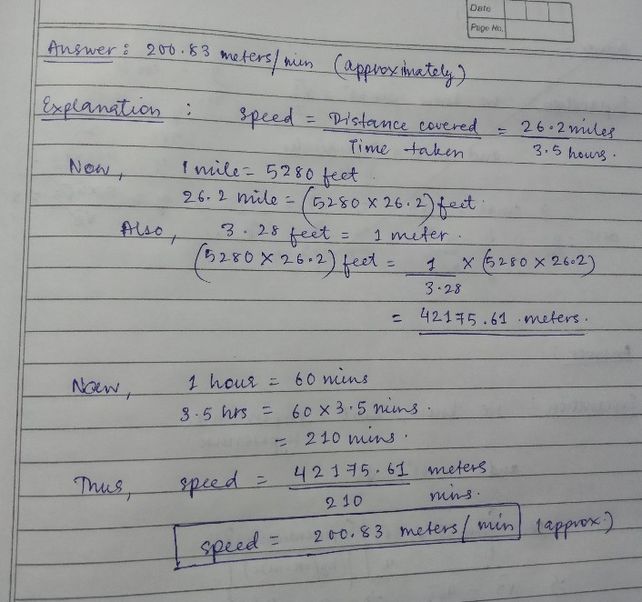 Date
Page No.
Answer : 200.83 meters/min (approximately)
Explanation : speed = Distance covered / Time taken = 26.2 miles / 3.5 hours.
Now, 1 mile = 5280 feet.
26.2 mile = (5280 × 26.2) feet.
Also, 3.28 feet = 1 meter.
(5280 × 26.2) feet = 1 / 3.28 × (5280 × 26.2)
= 42175.61 meters.
Now, 1 hour = 60 mins
3.5 hrs = 60 × 3.5 mins.
= 210 mins.
Thus, speed = 42175.61 / 210 meters / mins.
speed = 200.83 meters/min (approx.)